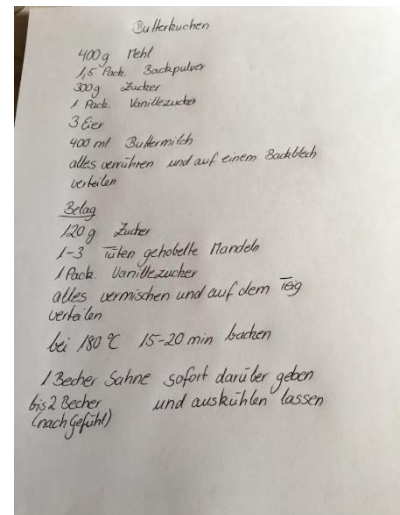 Butterkuchen
400g Mehl
1,5 Pack. Backpulver
300g Zucker
1 Pack. Vanillezucker
3 Eier
400 ml Buttermilch
alles verrühren und auf einem Backblech
verteilen
Belag
120g Zucker
1-3 Tüten gehobelte Mandeln
1 Pack. Vanillezucker
alles vermischen und auf dem Teig
verteilen
bei 180°C 15-20 min backen
1 Becher Sahne sofort darüber geben
bis 2 Becher und auskühlen lassen
(nach Gefühl)